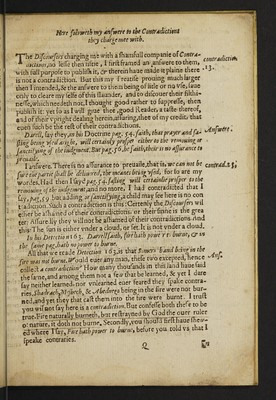 Here followeth my answere to the Contradictions
they charge mee with.
The Discoursers charging mee with a shamfull companie of Contra-
dictions, no lesse then 16tie, I first framed an answere to them,
with full purpose to publish it, & therein have made it plaine there
contradiction
.13.
is not a contradiction. But this my Treatise proving much larger
then I intended, & the answere to this being of little or no use, save
only to cleare my selfe of this slander, and to discover their filthi-
nesse, which needeth not, I thought good rather to suppresse, then
publish it: yet so as I will give thee, good Reader, a taste therof,
and of their upright dealing herein, assuring thee of my credit,
even such be the rest of their contradictions.
Darell, say they, in his Doctrine pag. 54. saith, that prayer and fa-
Answere.
sting being used aright, will certainly prosper either to the removing or
sanctifying of the judgment. But pag. 56. he saith, there is no assurance to
prevaile.
I answere. There is no assurance to prevaile, that is, we can not be
contrad. 13,
sure the partie shall be delivered, the meanes being used, for so are my
wordes. Had then I sayd pag. 54. fasting will certainly prosper to the
removing of the judgement, and no more, I had contradicted that I
say, pag. 59. but adding, or sanctifying, a child may see here is no con-
tradiction. Such a contradiction is this: Certenly the Discoursers wil
either be ashamed of their contradictions, or their shame is the grea-
ter. Assure they will not be ashamed of their contradictions. And
this: The sun is either under a cloud, or set. It is not under a cloud.
In his Detection 163. Darell saith, fire hath power to burne, & in
the same pag. hath no power to burne.
All that we reade Detection 163. is that Somers hand being in the
Ans.
fire was not burnt. Would ever any man, these two excepted, hence
collect a contradiction? How many thousands in this land have said
the same, and among them not a few that be learned, & yet I dare
say neither learned, nor unlearned ever feared they spake contra-
ries. Shadrach, Misbech, & Abednego being in the fire were not bur-
ned, and yet they that cast them into the fire were burnt. I trust
you wil not say here is a contradiction. But confesse both these to be
true. Fire naturally burneth, but restrayned by God the over ruler
of nature, it doth not burne. Secondly, you should first have shew-
ed where I say, Fire hath power to burne, before you told us that I
speake contraries.
Q